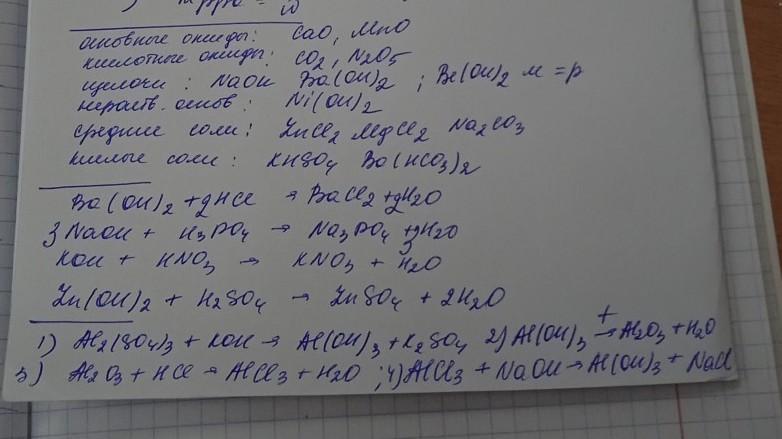 основные оксиды: CaO, MnO
кислотные оксиды: CO2, N2O5
щелочи: NaOH Ba(OH)2; Be(OH)2 м =р
нераств. основ: Ni(OH)2
средние соли: ZnCl2 MgCl2 Na2CO3
кислые соли: KHSO4 Ba(HCO3)2
Ba(OH)2 + 2HCl → BaCl2 + 2H2O
3NaOH + H3PO4 → Na3PO4 + 3H2O
KOH + HNO3 → KNO3 + H2O
Zn(OH)2 + H2SO4 → ZnSO4 + 2H2O
1) Al2(SO4)3 + KOH → Al(OH)3 + K2SO4 2) Al(OH)3 t→ Al2O3 + H2O
3) Al2O3 + HCl → AlCl3 + H2O; 4) AlCl3 + NaOH → Al(OH)3 + NaCl